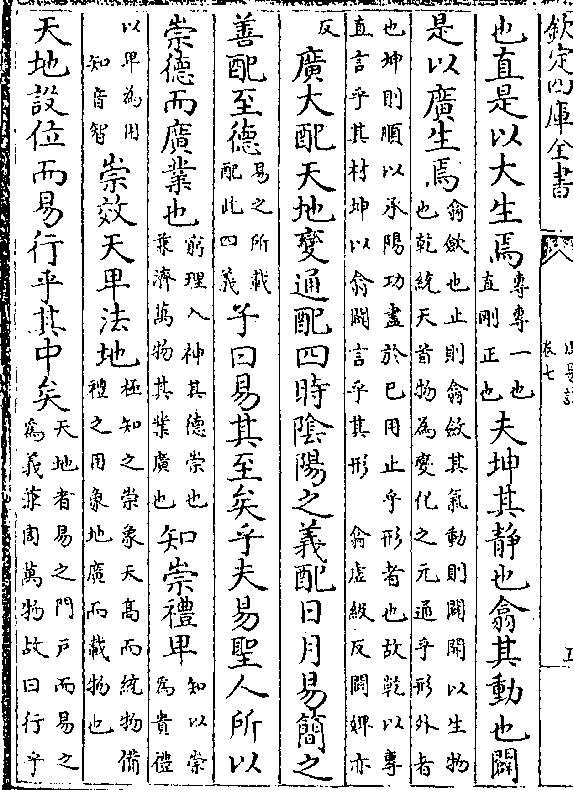 欽定四庫全書
周易註
卷七
五
也直是以大生焉專專一也直剛正也夫坤其靜也翕其動也闢
是以廣生焉翕斂也止則翕斂其氣動則闢開以生物也乾統天首物為變化之元通乎形外者
也坤則順以承陽功盡於已用止乎形者也故乾以專直言乎其材坤以翕闢言乎其形　翕虛級反闢婢亦
反廣大配天地變通配四時陰陽之義配日月易簡之
善配至德易之所載配此四義子曰易其至矣乎夫易聖人所以
崇德而廣業也窮理入神其德崇也兼濟萬物其業廣也知崇禮卑知以崇為貴禮
以卑為用知音智崇效天卑法地極知之崇象天高而統物備禮之用象地廣而載物也
天地設位而易行乎其中矣天地者易之門戸而易之為義兼周萬物故曰行乎